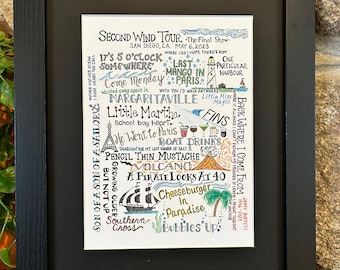 Second Wind Tour - The Final Show
San Diego, CA. May 6, 2023
It's 5 O'Clock
Somewhere
Come Monday
Last
Mango in
Paris
One
Particular
Harbour
Margaritaville
Little Miss
Magic
Little Martha,
School boy heart
Fins
He Went to Paris
Boat Drinks
Pencil Thin Mustache
Volcano
A Pirate Looks At 40
Cheeseburger
in
Paradise
Southern
Cross
Bubbles Up
Son of a Son of a Sailor
Growing Older
But Not Up
Back Where I Come From
Jimmy Buffett